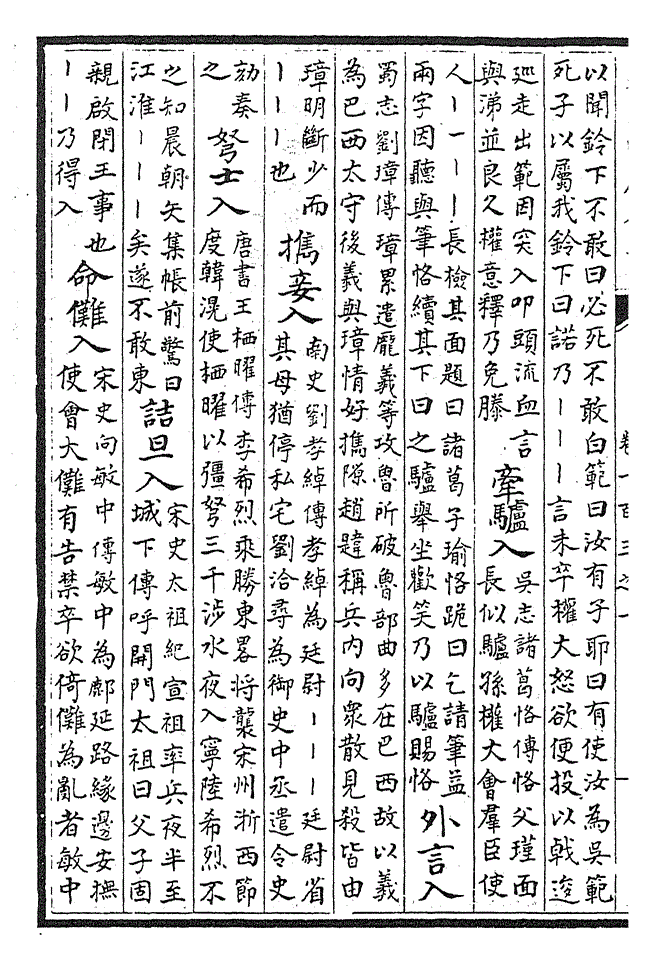 卷一百三之一
以聞鈴下不敢曰必死不敢白範曰汝有子耶曰有使汝為吳範
死子以屬我鈴下曰諾乃｜｜｜言未卒權大怒欲便投以戟逡
巡走出範因突入叩頭流血言
與涕並良久權意釋乃免滕
牽驢入
吳志諸葛恪傳恪父瑾面
長似驢孫權大會羣臣使
人｜一｜｜｜長檢其面題曰諸葛子瑜恪跪曰乞請筆益
兩字因聽與筆恪續其下曰之驢舉坐歡笑乃以驢賜恪
外言入
蜀志劉璋傳璋累遣龐義等攻魯所破魯部曲多在巴西故以義
為巴西太守後義與璋情好攜隙趙韙稱兵內向衆散見殺皆由
璋明斷少而
｜｜｜也
攜妾入
南史劉孝綽傳孝綽為廷尉｜｜｜廷尉省
其母猶停私宅劉洽尋為御史中丞遣令史
劾奏
之
弩士入
唐書王栖曜傳李希烈乘勝東畧將襲宋州浙西節
度韓滉使栖曜以彊弩三千涉水夜入寧陸希烈不
之知晨朝矢集帳前驚曰
江淮｜｜｜矣遂不敢東
詰旦入
宋史太祖紀宣祖率兵夜半至
城下傳呼開門太祖曰父子固
親啟閉王事也
｜｜乃得入
命儺入
宋史向敏中傳敏中為鄜延路緣邊安撫
使會大儺有告禁卒欲倚儺為亂者敏中